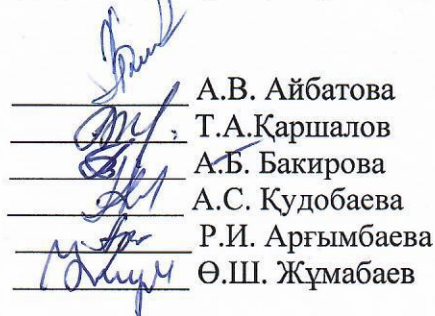 А.В. Айбатова
Т.А.Қаршалов
А.Б. Бакирова
А.С. Құдобаева
Р.И. Арғымбаева
Ө.Ш. Жұмабаев